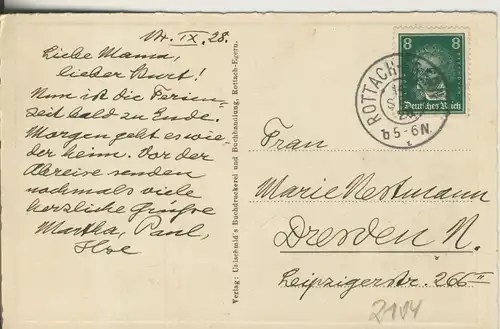 IX. 28.
Liebe Mama,
lieber Kurt!
Nun ist die Ferien-
zeit bald zu Ende.
Morgen geht es wie-
der heim. Vor der
Abreise senden
nochmals viele
herzliche Grüße
Martha, Paul,
Ilse
Buchdruckerei und Buchhandlung, Rottach-Egern.
Verlag:
8 8
Deutsches Reich
ROTTACH
5-6N.
Frau
Marie Nestmann
Dresden N.
Leipzigerstr. 266 II
2104